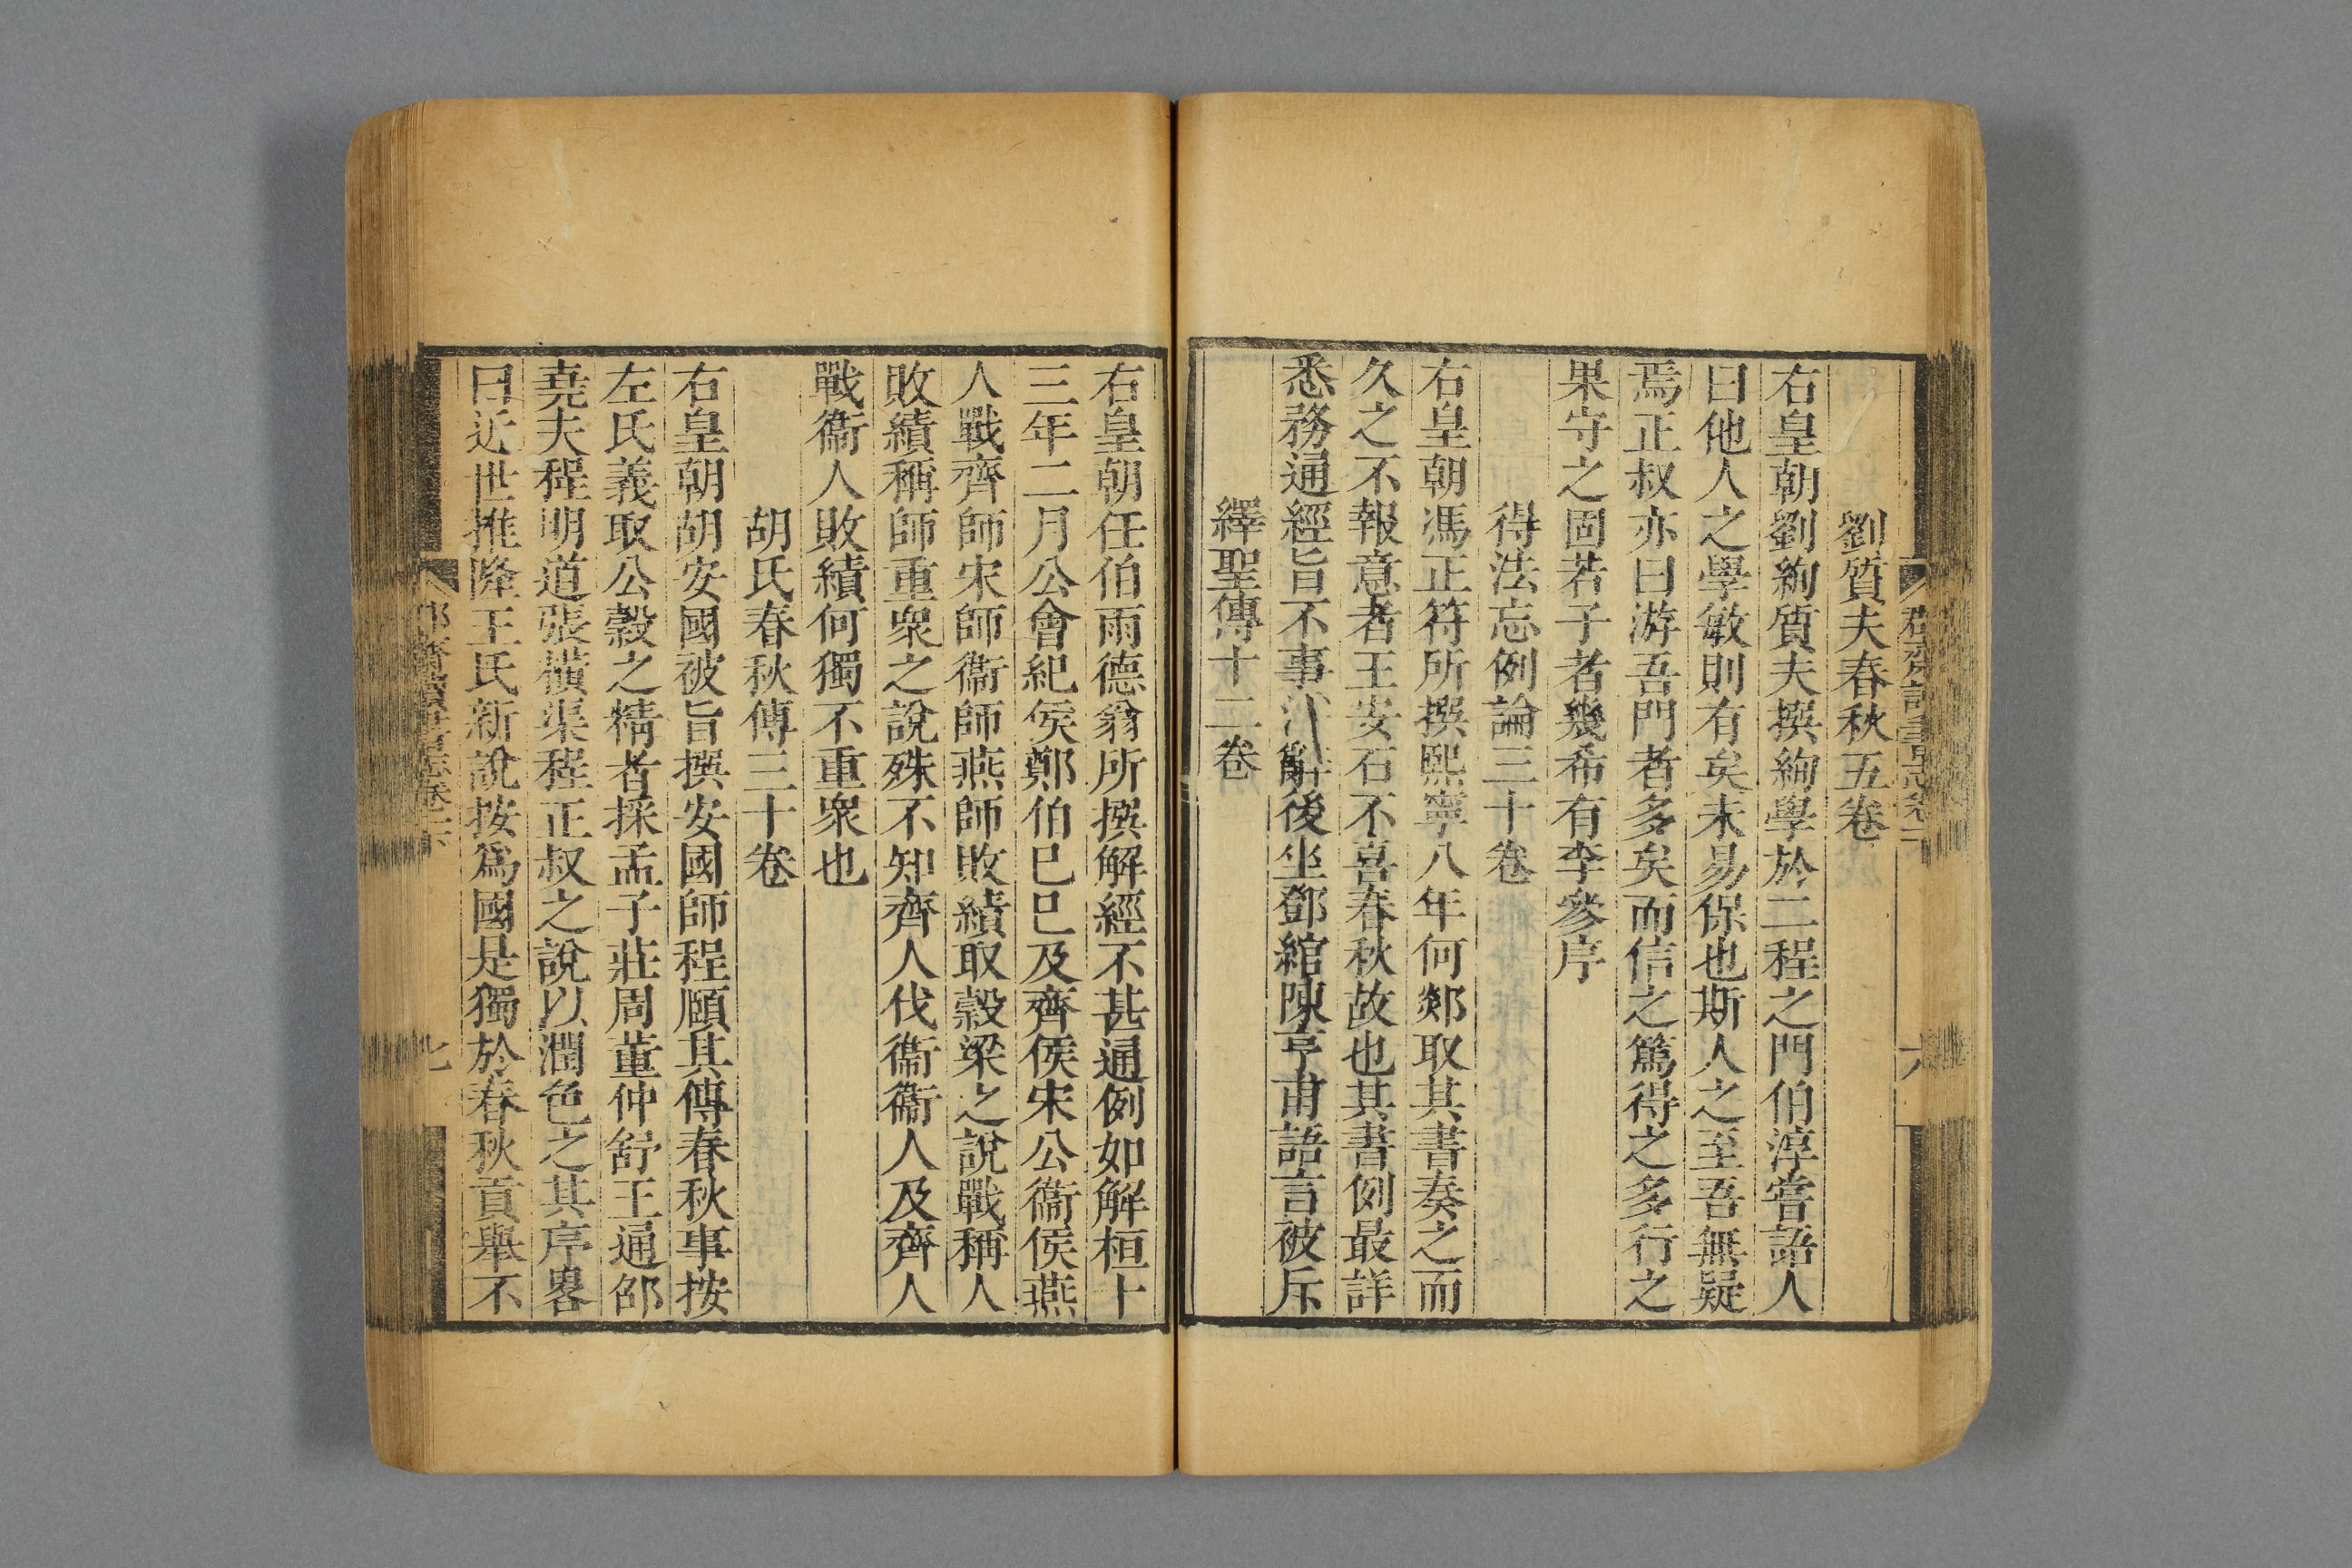 劉質夫春秋五卷
右皇朝劉絢質夫撰絢學於二程之門伯淳嘗語人
曰他人之學敏則有矣未易保也斯人之至吾無疑
焉正叔亦曰游吾門者多矣而信之篤得之多行之
果守之固若子者幾希有李參序
得法忘例論三十卷
右皇朝馮正符所撰熙寧八年何郯取其書奏之而
久之不報意者王安石不喜春秋故也其書例最詳
悉務通經旨不事浮辭後坐鄧綰陳亨甫語言被斥
繹聖傳十二卷
右皇朝任伯雨德翁所撰解經不甚通例如解桓十
三年二月公會紀侯鄭伯巳巳及齊侯宋公衞侯燕
人戰齊師宋師衞師燕師敗績取穀梁之說戰稱人
敗績稱師重衆之說殊不知齊人伐衞衞人及齊人
戰衞人敗績何獨不重衆也
胡氏春秋傳三十卷
右皇朝胡安國被旨撰安國師程頤其傳春秋事按
左氏義取公穀之精者採孟子莊周董仲舒王通邵
堯夫程明道張橫渠程正叔之說以潤色之其序畧
曰近世推隆王氏新說按爲國是獨於春秋貢舉不
七